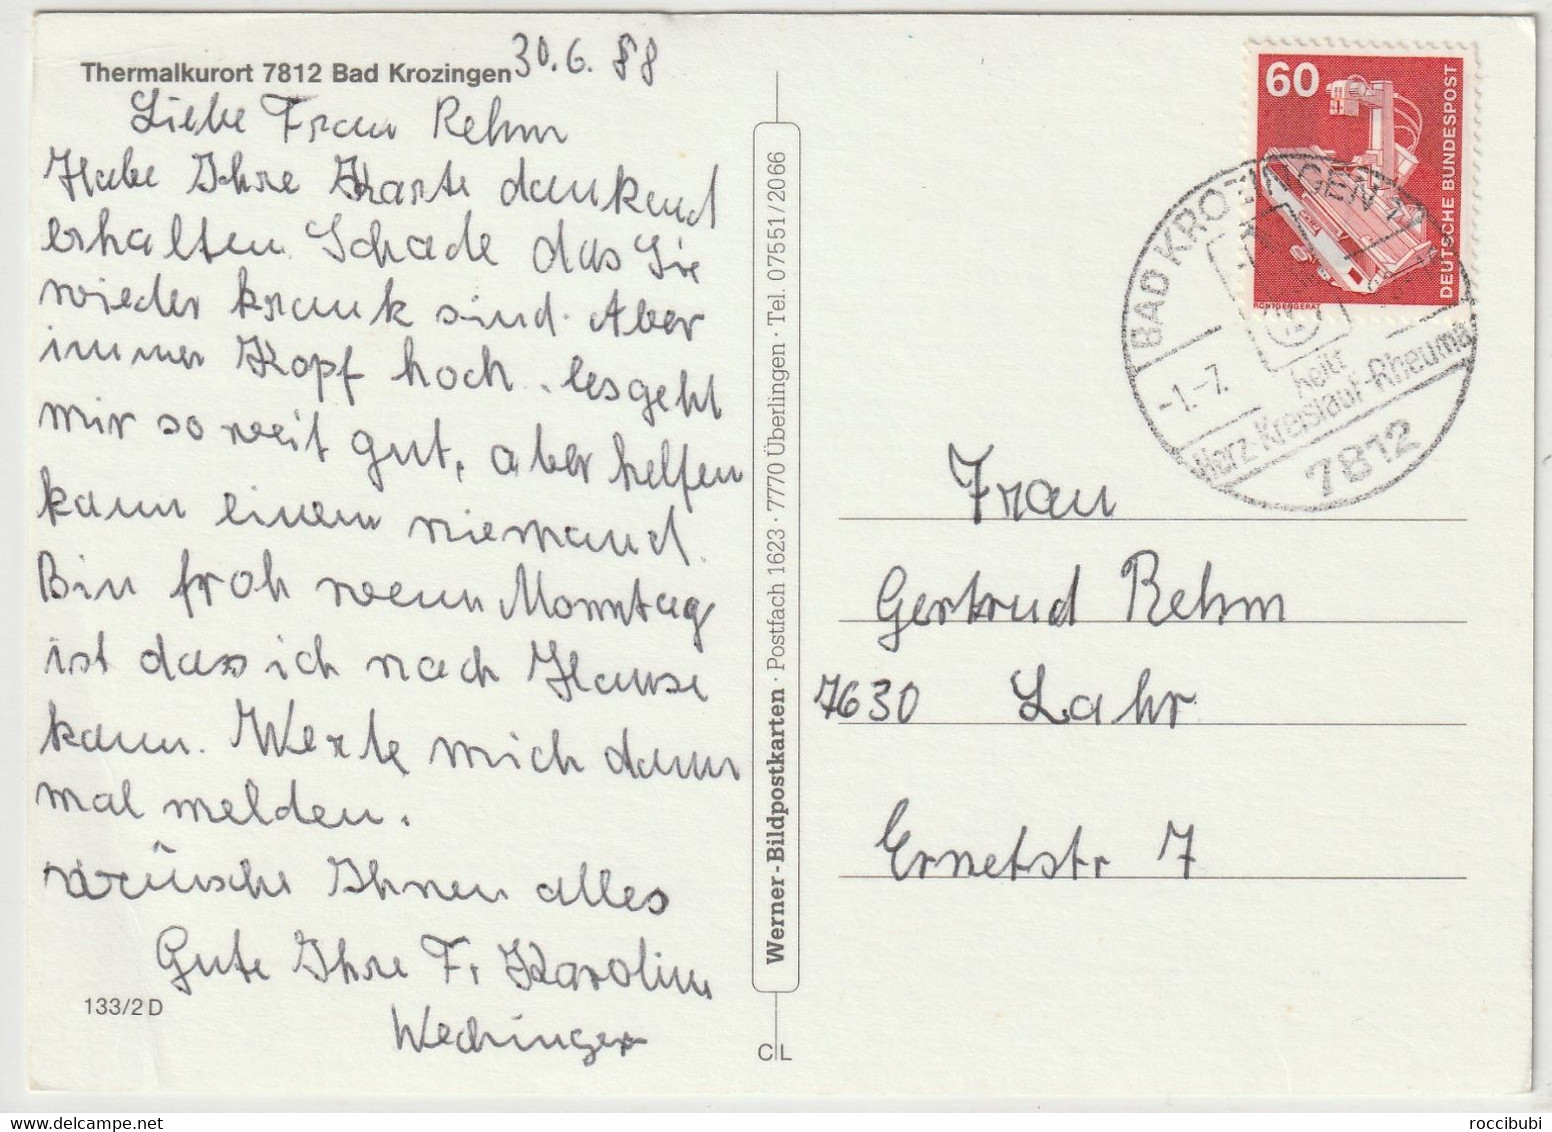 Thermalkurort 7812 Bad Krozingen 30.6.88
Liebe Frau Rehm
Habe Ihre Karte dankend
erhalten. Schade das Sie
wieder krank sind. Aber
immer Kopf hoch. es geht
mir so weit gut, aber helfen
kann einem niemand.
Bin froh wenn Monntag
ist dass ich nach Hause
kann. Werte mich dann
mal melden.
wünsche Ihnen alles
Gute Ihre Fr Karolin
Wechinger
133/2 D
Werner-Bildpostkarten · Postfach 1623 · 7770 Überlingen · Tel. 07551/2066
C L
60
DEUTSCHE BUNDESPOST
RÖNTGENGERÄT
BAD KROZINGEN 1
-1.-7.
heilt
Herz-Kreislauf-Rheuma
7812
Frau
Gertrud Rehm
7630 Lahr
Ernetstr 7
roccibubi